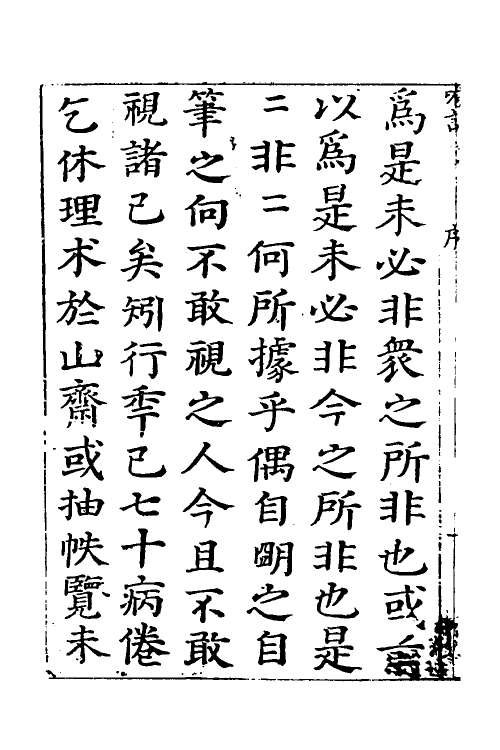 序
爲是未必非衆之所非也或
以爲是未必非今之所非也是
二非二何所據乎偶自明之自
筆之向不敢視之人今且不敢
視諸已矣矧行年已七十病倦
乞休理术於山齋或抽帙覽未